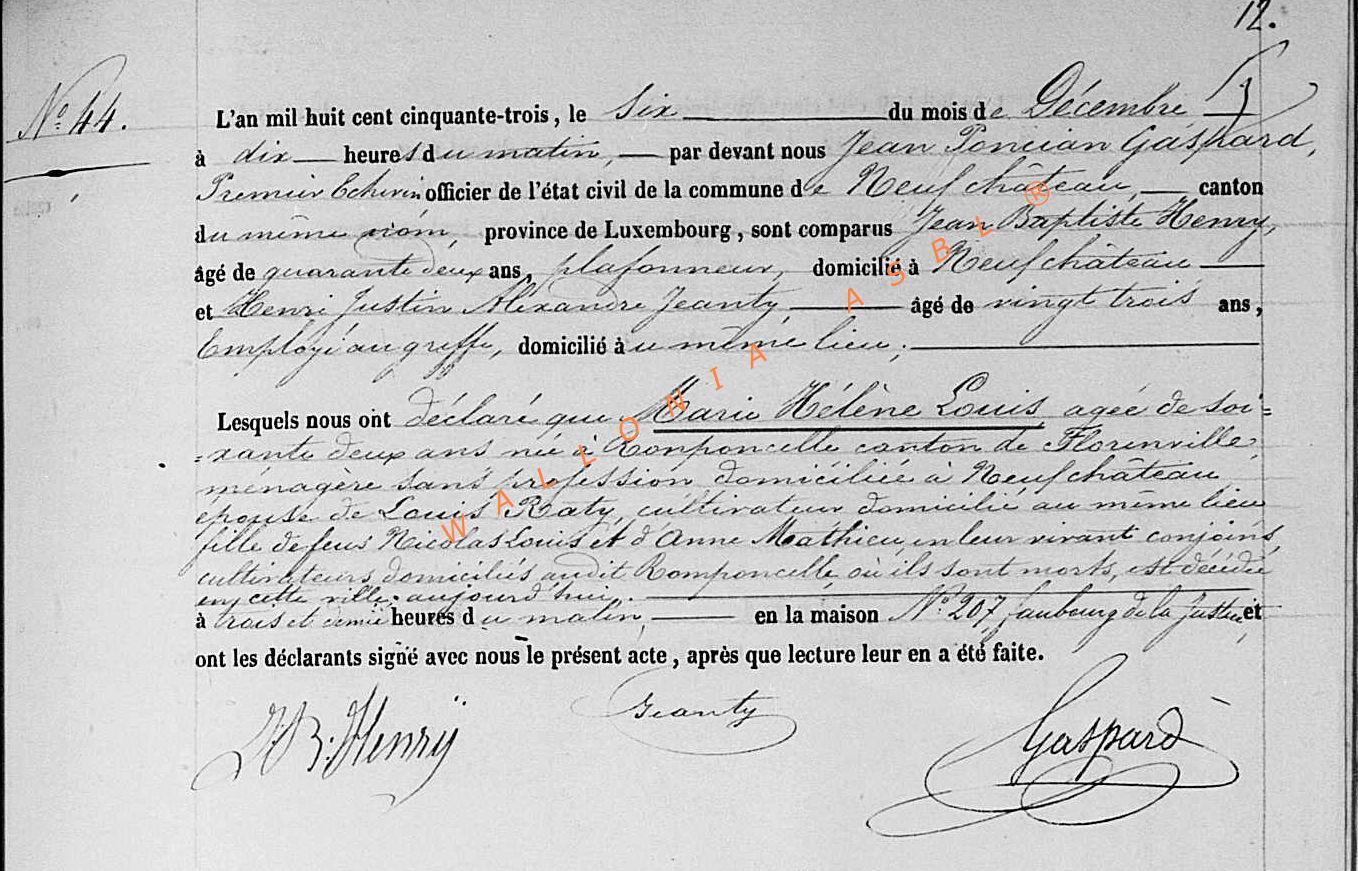 12.
N° 44.
L'an mil huit cent cinquante-trois, le six du mois de Décembre,
à dix heures du matin, par devant nous Jean Poncian Gaspard,
Premier Echevin officier de l'état civil de la commune de Neufchâteau, canton
du même nom, province de Luxembourg, sont comparus Jean Baptiste Henry,
âgé de quarante deux ans, plafonneur, domicilié à Neufchâteau
et Henri Justin Alexandre Jeanty, âgé de vingt trois ans,
Employé au greffe, domicilié au même lieu;
Lesquels nous ont déclaré que Marie Hélène Louis, agée de soi=
=xante deux ans née à Romponcelle canton de Florenville,
ménagère sans profession domiciliée à Neufchâteau,
épouse de Louis Raty, cultivateur domicilié au même lieu
fille de feus Nicolas Louis et d'Anne Mathieu, en leur vivant conjoins,
cultivateurs, domiciliés audit Romponcelle où ils sont morts, est décédée
en cette ville, aujourd'hui,
à trois et demie heures du matin, en la maison N° 207, faubourg de la Justice, et
ont les déclarants signé avec nous le présent acte, après que lecture leur en a été faite.
JB. Henrÿ Jeanty Gaspard
WALLONIA ASBL ®